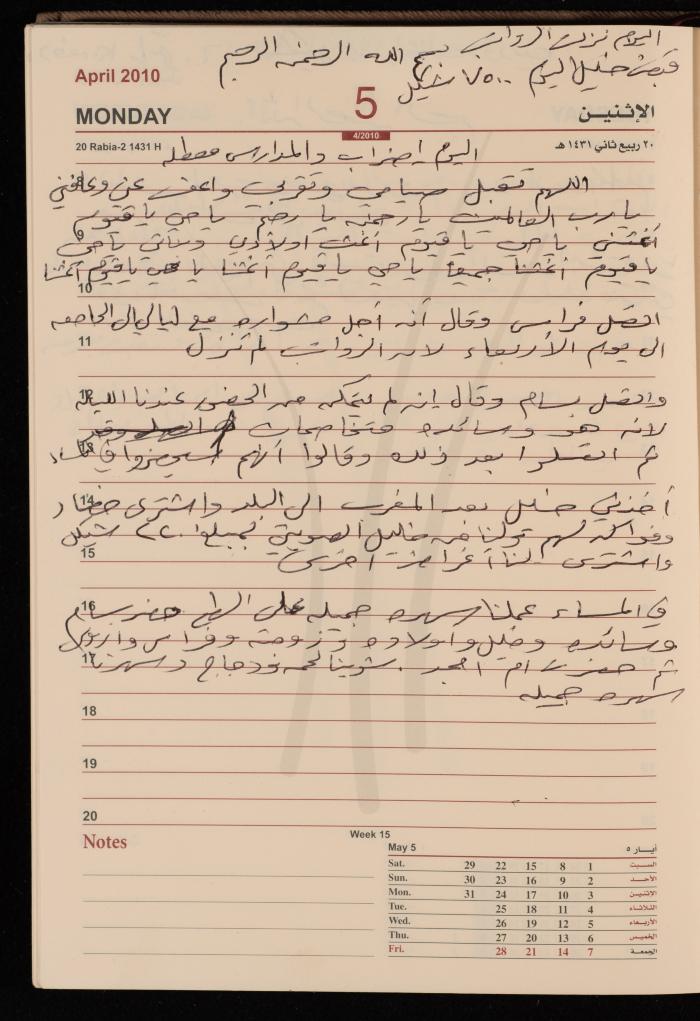 اليوم نزلت الرواتب بسم الله الرحمن الرحيم
قبض خليل اليوم ٧٥٠٠ شيكل
April 2010
MONDAY
5
الإثنين
4/2010
20 Rabia-2 1431 H
٢٠ ربيع ثاني ١٤٣١ هـ
اليوم إضراب والمدارس معطله
8 اللهم تقبل صيامي وتقربي واعف عني وعافني
يا رب العالمين يا رحمن يا رحيم يا حي يا قيوم
9 أغثني يا حي يا قيوم أغث اولادي وبناتي يا حي
يا قيوم أغثنا جميعا يا حي يا قيوم أغثنا يا حي يا قيوم أغثنا
10
اتصل فراس وقال أنه أجل مشواره مع ليالي الى الجامعه
11 الى يوم الأربعاء لانه الرواتب لم تنزل
12 واتصل بسام وقال انه لم يتمكن من الحضور عندنا الليله
لانه هو وسائده متخاصمات
13 ثم اتصلوا بعد ذلك وقالوا أنهم سيحضروا في المساء
14 أخذني خليل بعد المغرب الى البلد واشترى خضار
وفواكه لهم
بمبلغ ٢٢٠ شيكل
15 واشترى لنا أغراض اخرى
16 في المساء عملنا سهره جميله على السطح حضر بسام
وسائده وخليل واولاده وزوجته وفراس
17 ثم حضرت ام امجد. شوينا لحمه ودجاج وسهرنا
سهره جميله
18
19
20
Notes
Week 15
May 5
أيــار ٥
Sat. 29 22 15 8 1 السبت
Sun. 30 23 16 9 2 الأحــد
Mon. 31 24 17 10 3 الاثنيـن
Tue. 25 18 11 4 الثلاثـاء
Wed. 26 19 12 5 الأربعـاء
Thu. 27 20 13 6 الخميس
Fri. 28 21 14 7 الجمعـة